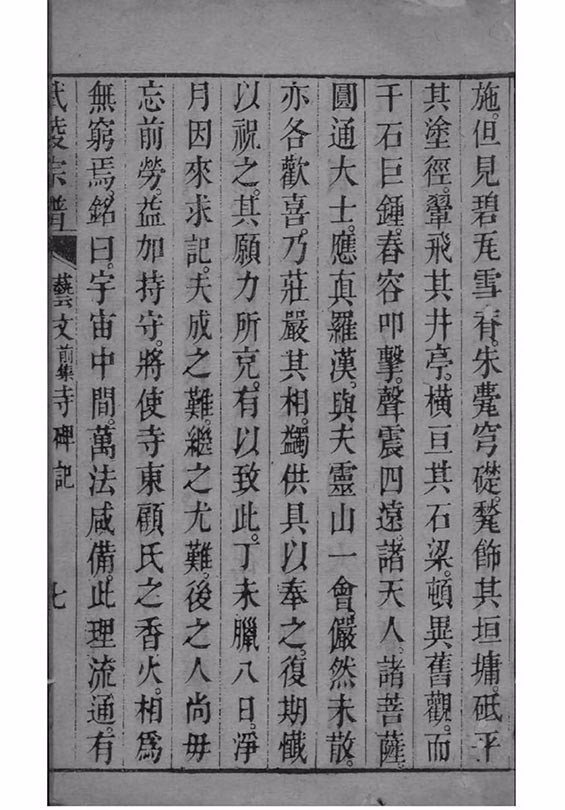 施。但見碧瓦雪脊。朱甍穹礎。甃飾其垣墉。砥平
其塗徑。翬飛其井亭。橫亘其石梁。頓異舊觀。而
千石巨鍾。舂容叩擊。聲震四遠。諸天人。諸菩薩。
圓通大士。應真羅漢。與夫靈山一會儼然未散。
亦各歡喜。乃莊嚴其相。蠲供具以奉之。復期懺
以祝之。其願力所克。有以致此。丁未臘八日。淨
月因來求記。夫成之難。繼之尤難。後之人尚毋
忘前勞。益加持守。將使寺東顧氏之香火。相爲
無窮焉。銘曰。宇宙中間。萬法咸備。此理流通。有
武陵宗譜 藝文前集寺碑記 七